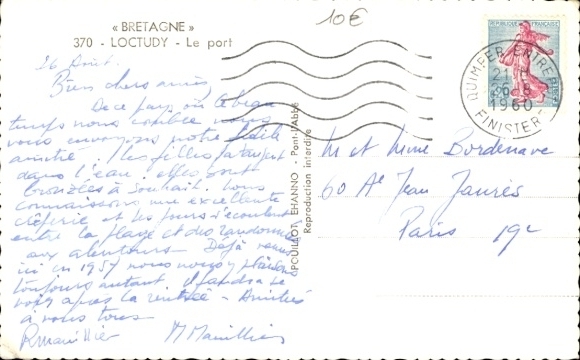 « BRETAGNE »
370 - LOCTUDY - Le port
10€
RÉPUBLIQUE FRANÇAISE
QUIMPER ENTREPOT
21 H
26 - 8
1960
FINISTERE
26 Août.
Biens chers amis,
De ce pays où le beau
temps nous comble nous
vous envoyons notre
amitié. Les filles pataugent
dans l'eau. elles sont
bronzées à souhait. Nous
connaissons une excellente
crêperie et les jours s'écoulent
entre la plage et des randonnées
aux alentours. Déjà venus
ici en 1957 nous nous y plaisons
toujours autant. Il faudra se
voir après la rentrée - Amitiés
à vous tous
Rmanillier M Manillier
CPOUILLOT EHANNO - Pont-l'Abbé
Reproduction interdite
M et Mme Bordenave
60 Ae Jean Jaurès
Paris 19e